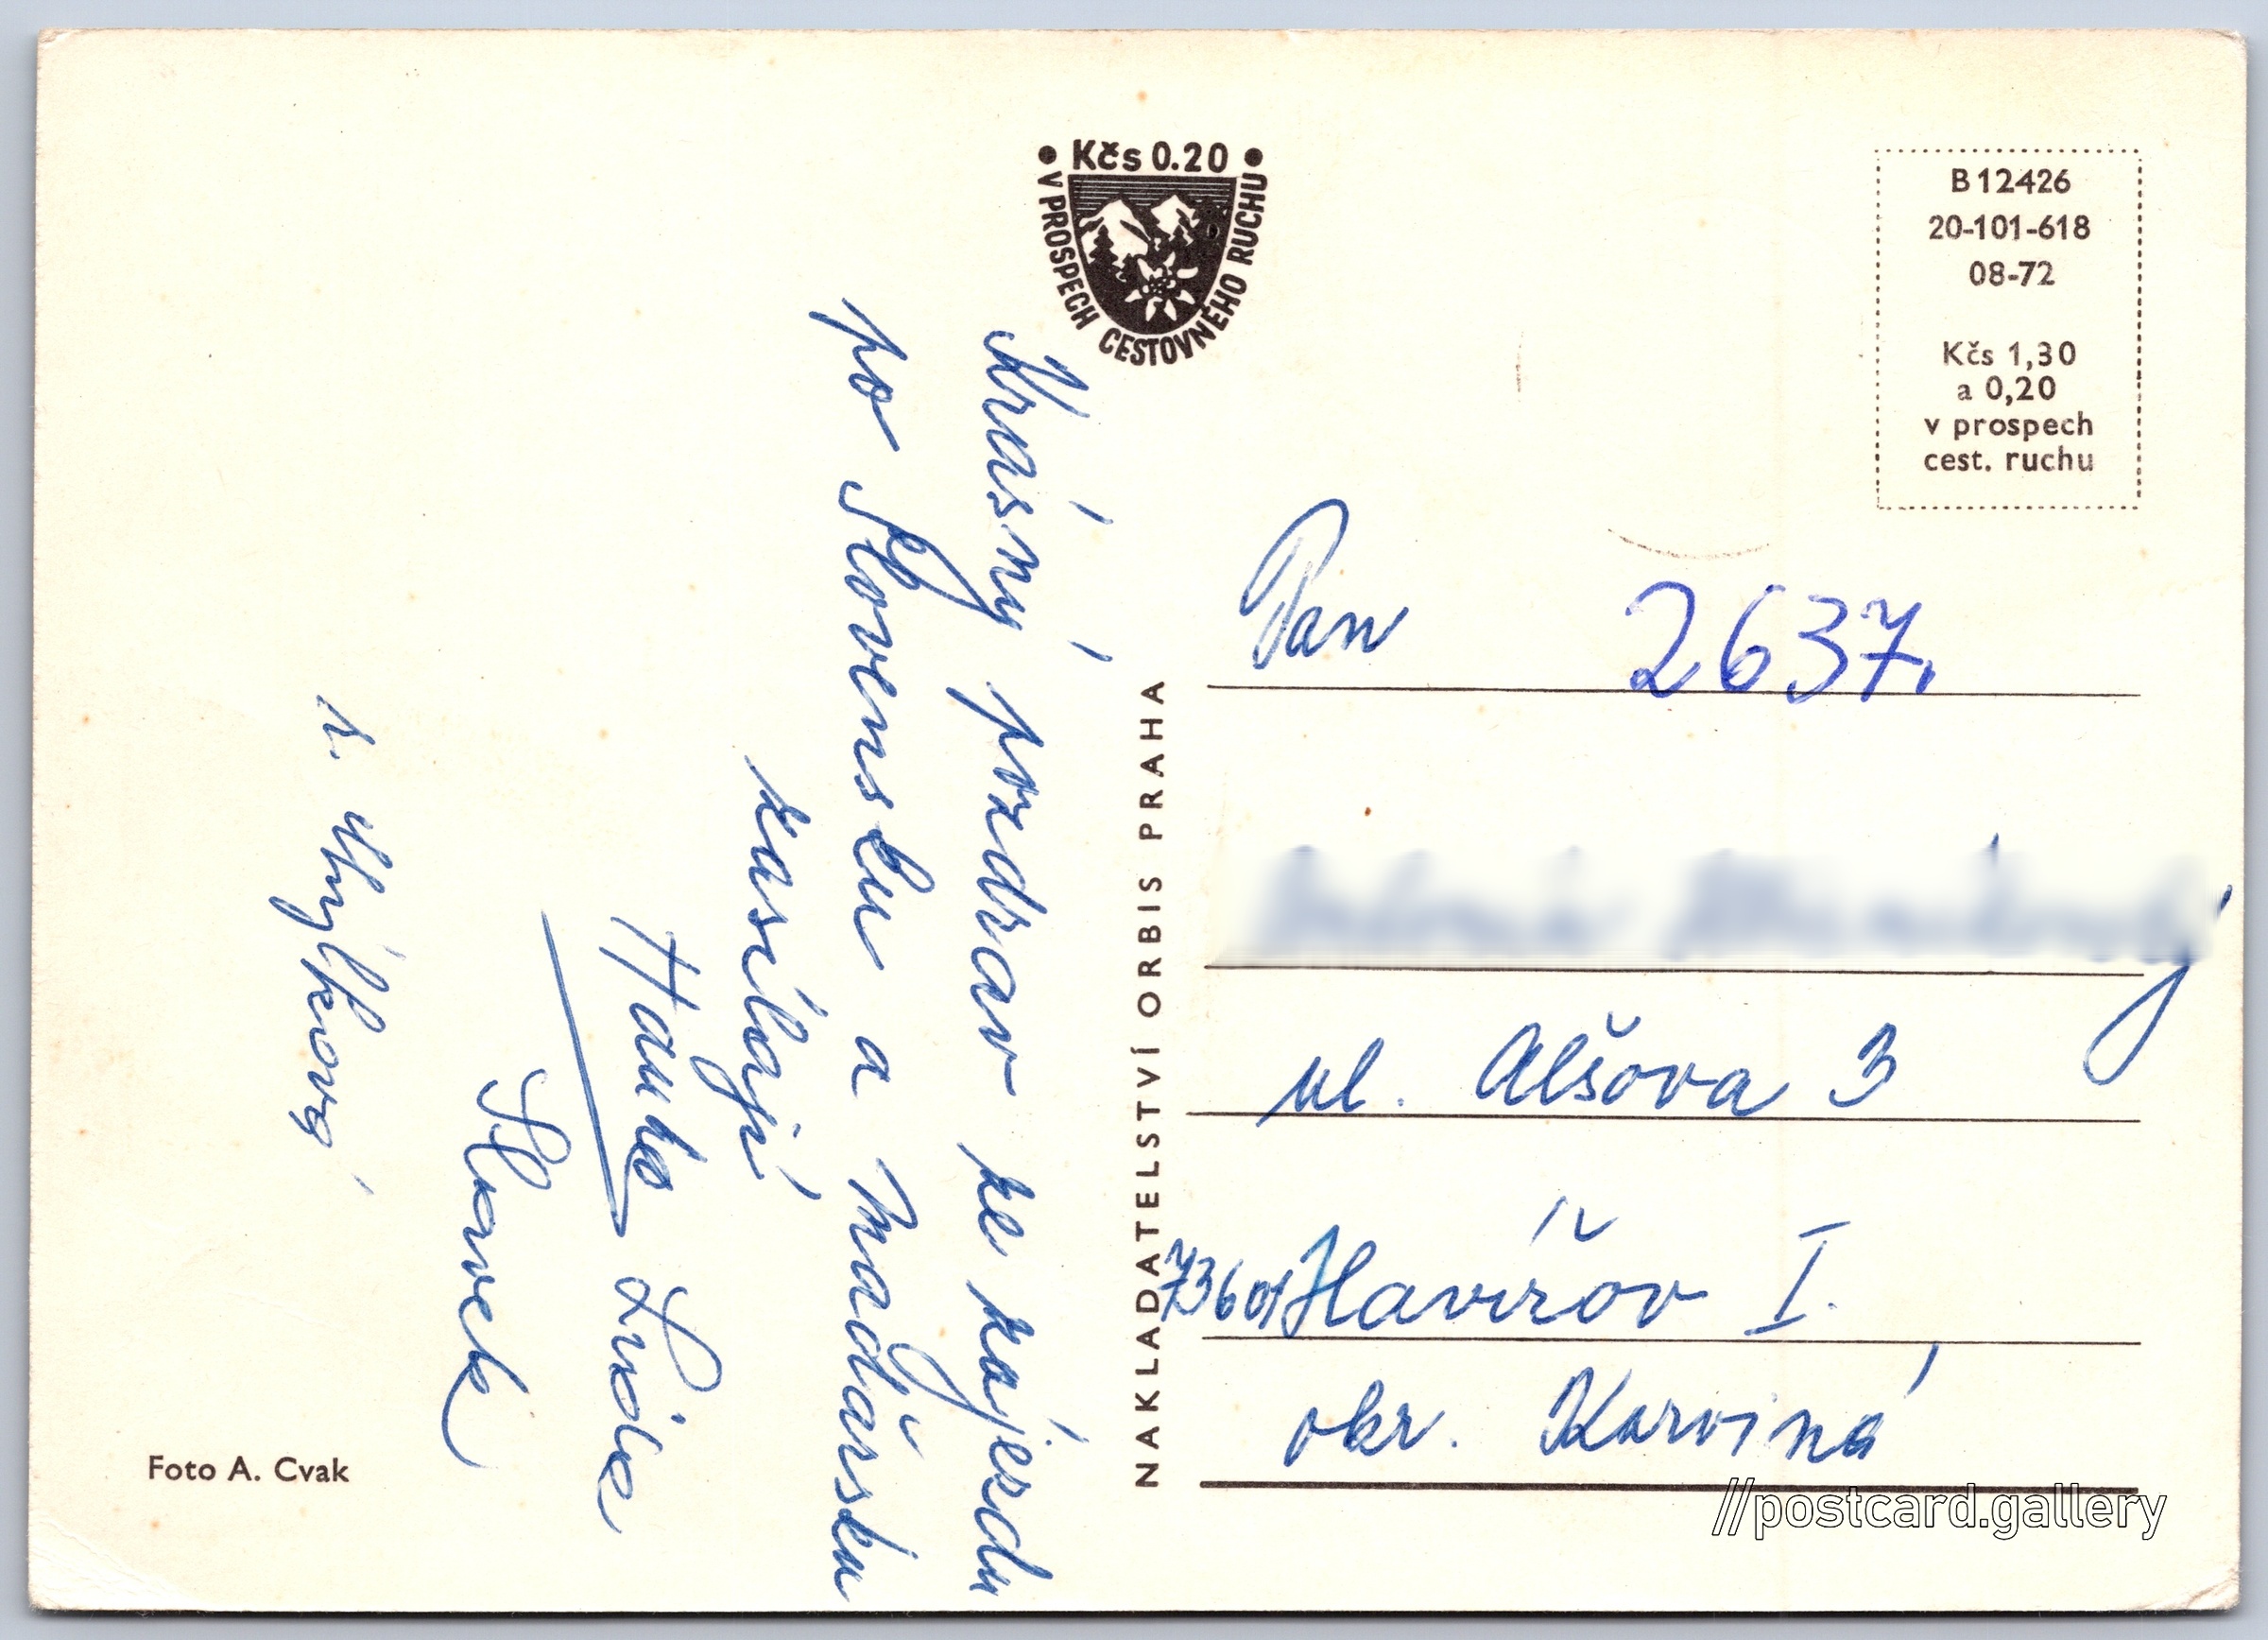 Kčs 0.20
V PROSPECH CESTOVNÉHO RUCHU
B 12426
20-101-618
08-72
Kčs 1,30
a 0,20
v prospech
cest. ruchu
Krásný pozdrav ze zájezdu
po Slovensku a Maďarsku
zasílají
Hanka Lída
Slávek
Foto A. Cvak
NAKLADATELSTVÍ ORBIS PRAHA
Pan
2637,
ul. Alšova 3
73601 Havířov I.
okr. Karviná
//postcard.gallery